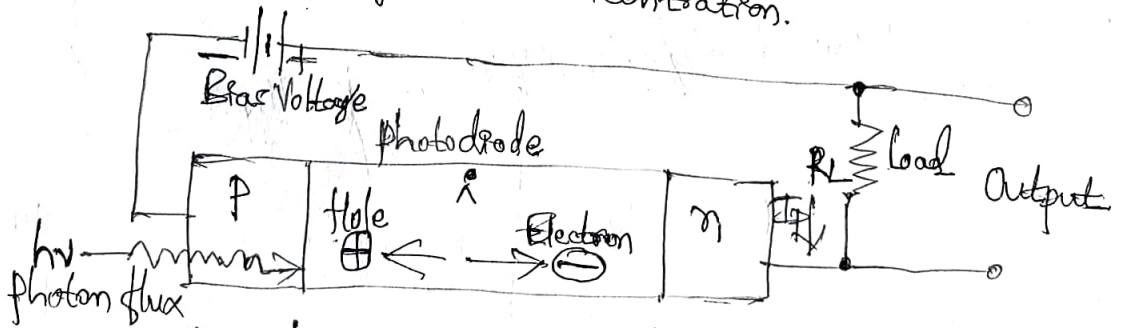 ncentration.
Bias Voltage
Photodiode
P
Hole
i
Electron
n
RL
Load
Output
hν
Photon flux